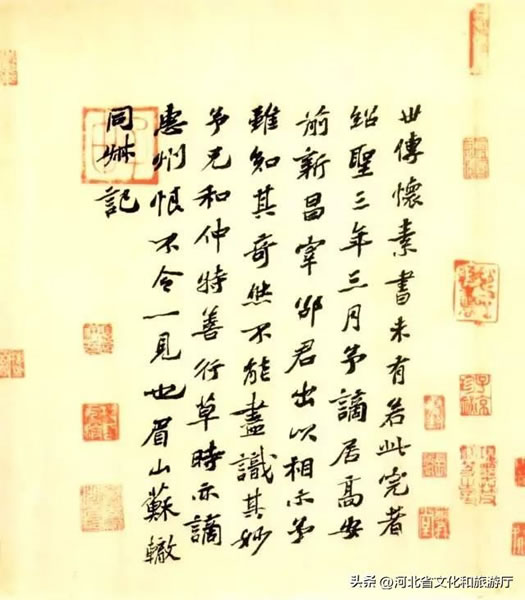 世傳懷素書未有若此完者
紹聖三年三月予謫居高安
前新昌宰邵君出以相示予
雖知其奇然不能盡識其妙
予兄和仲特善行草時亦謫
惠州恨不令一見也眉山蘇轍
同叔記
头条 @河北省文化和旅游厅